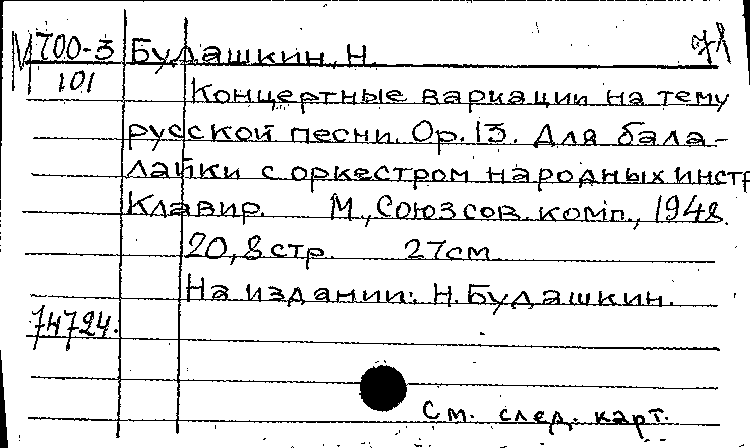 М 700-3 Будашкин, Н.
101
Концертные вариации на тему
русской песни. Op. 13. Для бала-
лайки с оркестром народных инстр
Клавир. М., Союз сов. комп., 1948.
20, 8 стр. 27 см
На издании: Н. Будашкин.
74724.
См. след. карт.